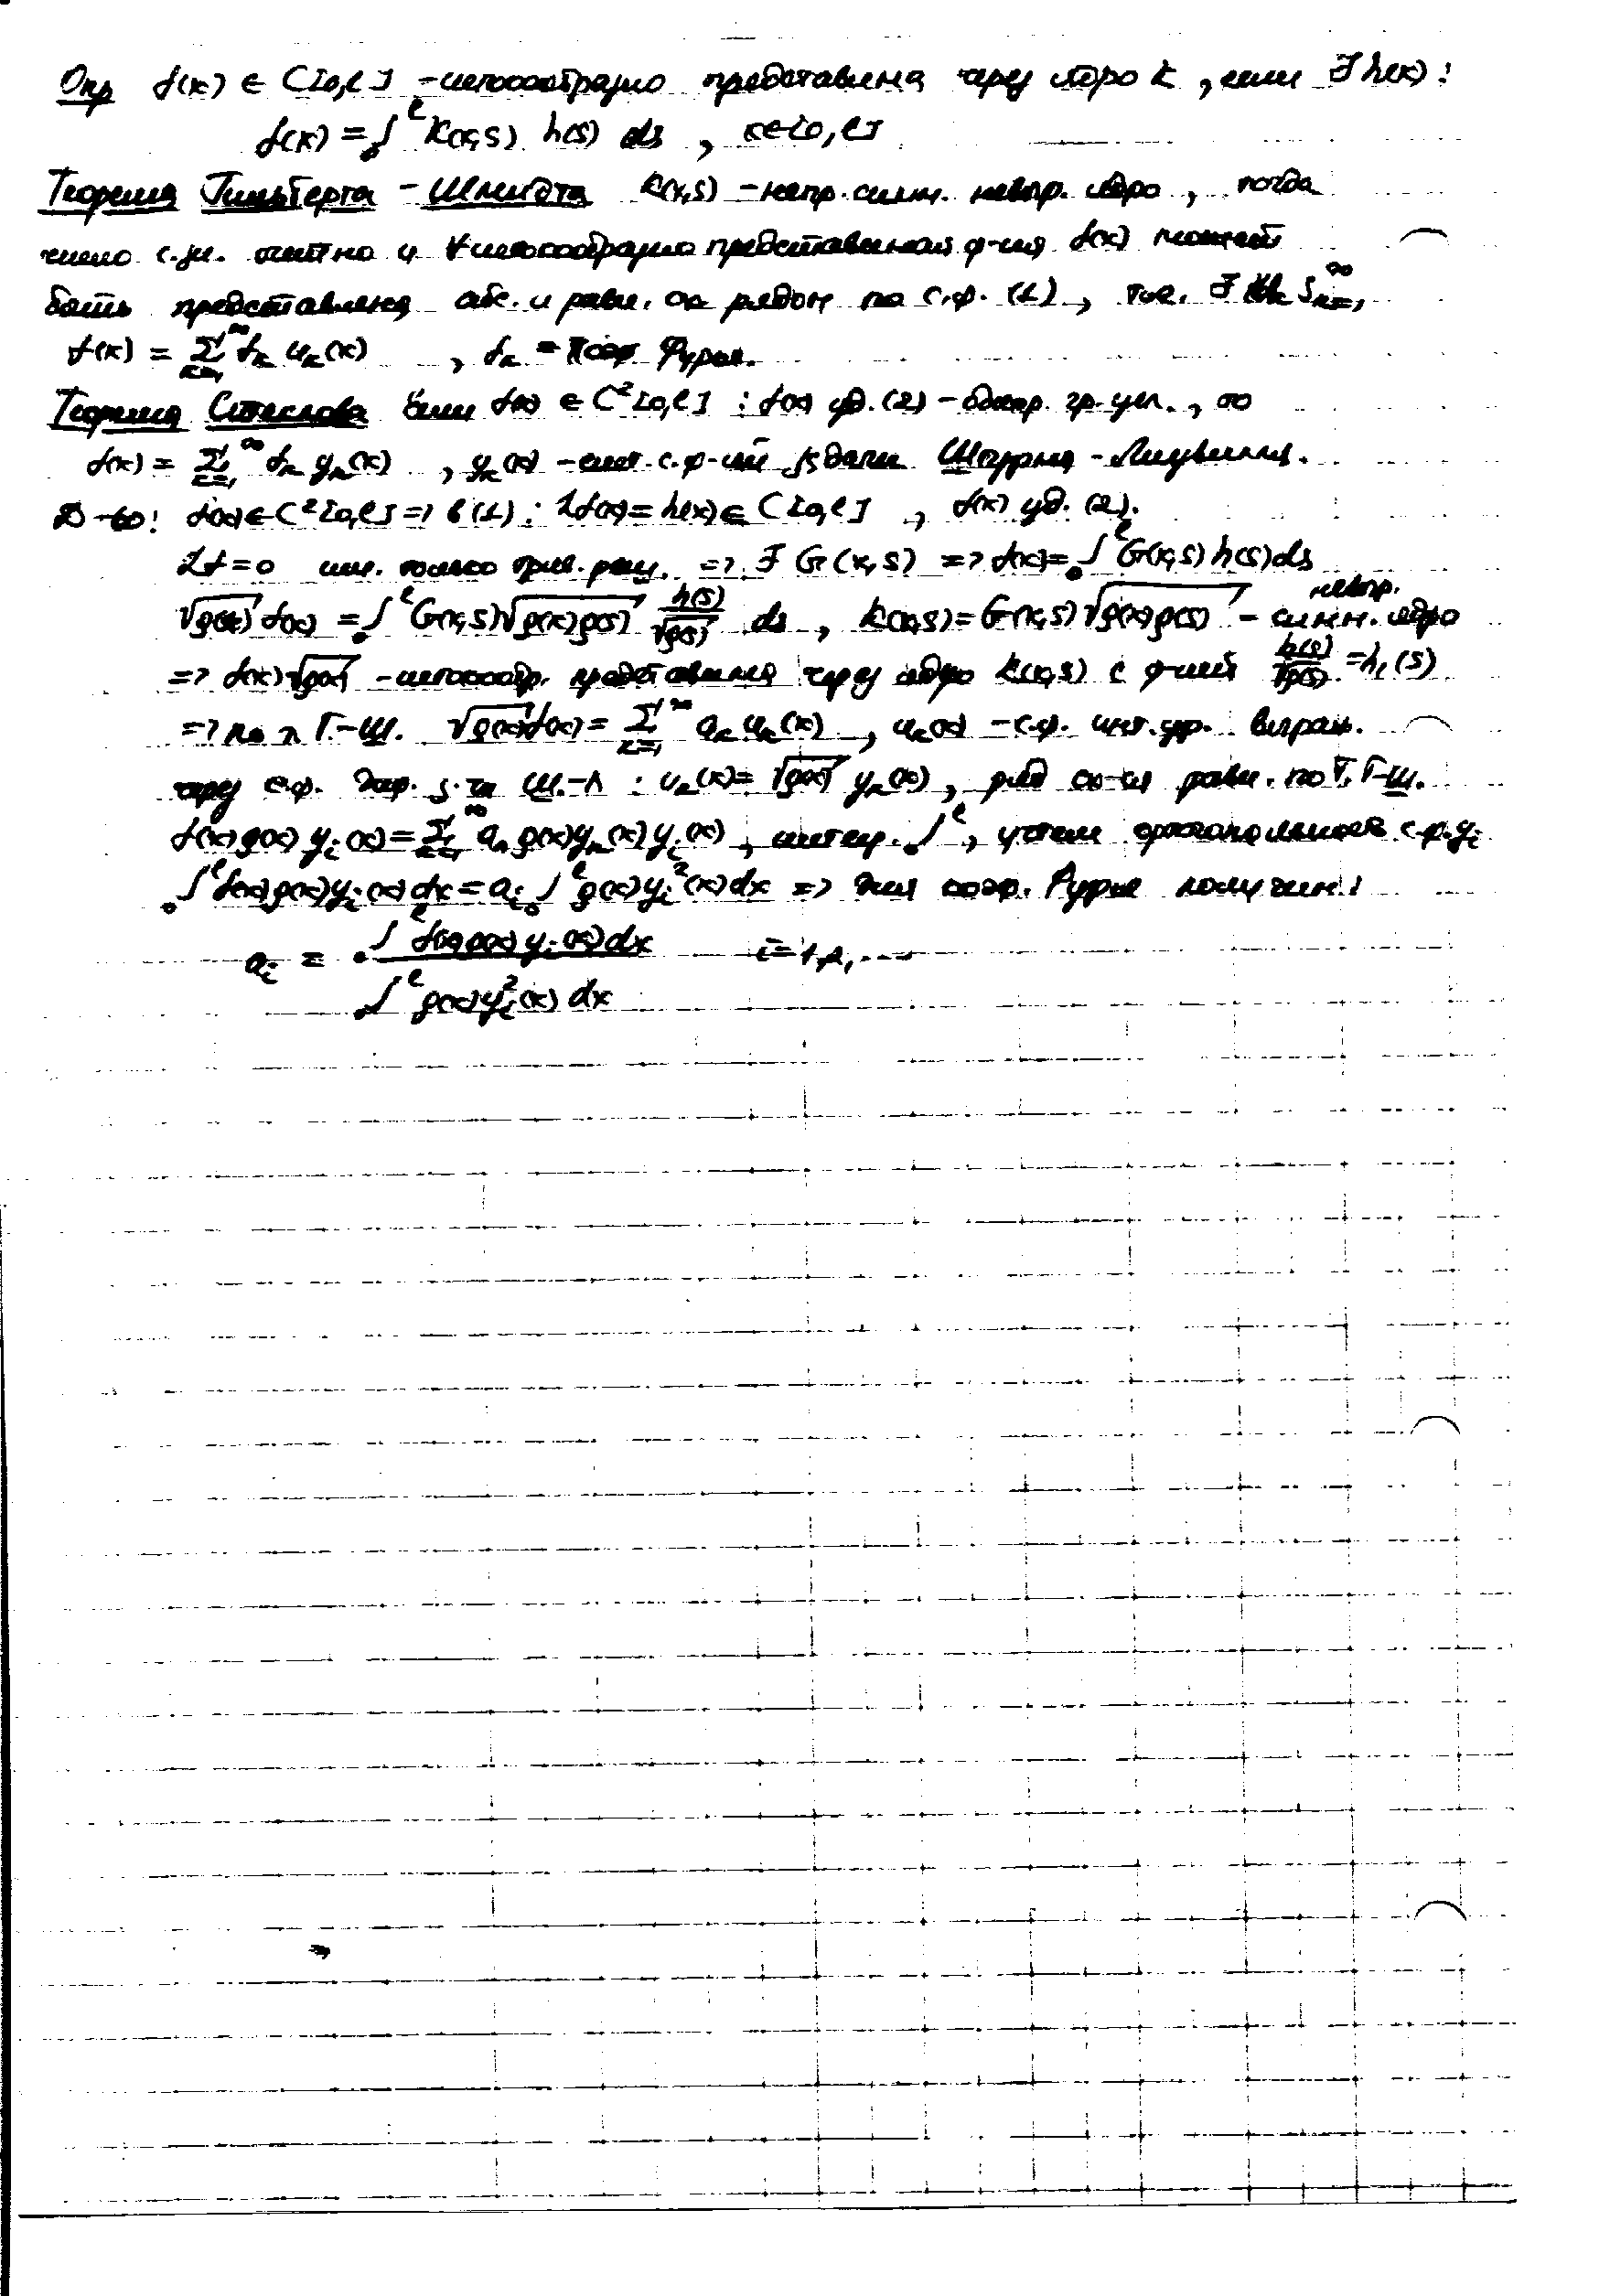 Опр f(x) ∈ C[0,l] – истокообразно представима через ядро K, если ∃ h(x):
f(x) = ₀∫^l K(x,s) h(s) ds, x∈[0,l]
Теорема Гильберта – Шмидта K(x,s) – непр. симм. невыр. ядро, тогда
число с.зн. счётно и ∀ истокообразно представимая ф-ия f(x) может
быть представлена абс. и равн. сх рядом по с.ф. (1), т.е.
f(x) = Σ_{k=1}^∞ f_k u_k(x), f_k – коэф Фурье.
Теорема Стеклова Если f(x) ∈ C²[0,l] : f(x) уд. (2) – однор. гр. усл., то
f(x) = Σ_{k=1}^∞ f_k y_k(x), y_k(x) – сист. с.ф-ий задачи Штурма – Лиувилля.
Д-во: f(x)∈C²[0,l] => в (1): Lf(x) = h(x) ∈ C[0,l], f(x) уд. (2).
Lf=0 им. только трив. реш. => ∃ G(x,s) => f(x) = ₀∫^l G(x,s) h(s) ds
√ρ(x) f(x) = ₀∫^l G(x,s) √ρ(x)ρ(s) h(s)/√ρ(s) ds, K(x,s) = G(x,s) √ρ(x)ρ(s) – невыр. симм. ядро
=> f(x)√ρ(x) – истокообр. представима через ядро K(x,s) с ф-ией h(s)/√ρ(s) = h₁(s)
=> по Г-Ш. √ρ(x) f(x) = Σ_{k=1}^∞ a_k u_k(x), u_k(x) – с.ф. инт. ур. выраж.
через с.ф. Ш.-Л : u_k(x) = √ρ(x) y_k(x), ряд сх-ся равн. по Т. Г-Ш.
f(x) ρ(x) y_i(x) = Σ_{k=1}^∞ a_k ρ(x) y_k(x) y_i(x), интегр. ₀∫^l, учтем ортогональность с.ф. y_i
₀∫^l f(x) ρ(x) y_i(x) dx = a_i ₀∫^l ρ(x) y_i²(x) dx => для коэф. Фурье получим:
a_i = ₀∫^l f(x) ρ(x) y_i(x) dx / ₀∫^l ρ(x) y_i²(x) dx i=1,2,...